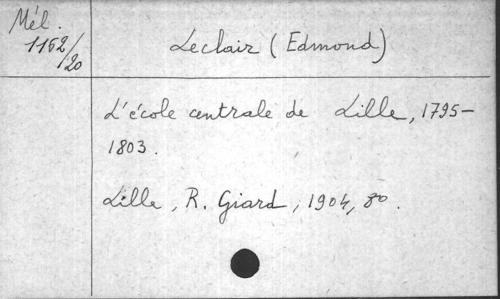 Mél.
1152/20
Leclair (Edmond)
L'école centrale de Lille, 1795-
1803.
Lille, R. Giard, 1904, 8º.